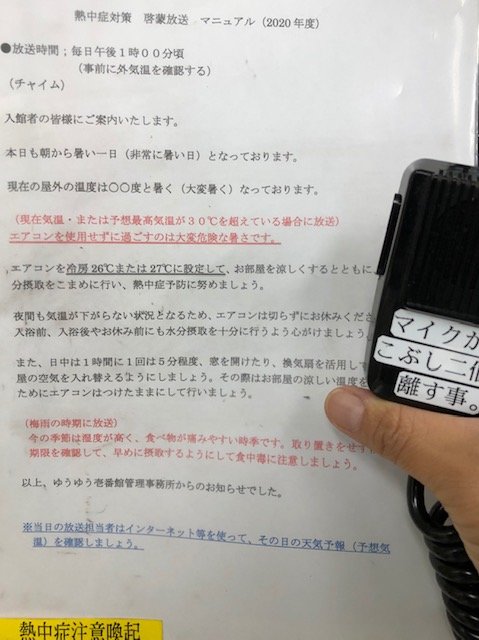 熱中症対策　啓蒙放送　マニュアル（2020年度）
●放送時間；毎日午後１時００分頃
（事前に外気温を確認する）
（チャイム）
入館者の皆様にご案内いたします。
本日も朝から暑い一日（非常に暑い日）となっております。
現在の屋外の温度は〇〇度と暑く（大変暑く）なっております。
（現在気温・または予想最高気温が３０℃を超えている場合に放送）
エアコンを使用せずに過ごすのは大変危険な暑さです。
エアコンを冷房26℃または27℃に設定して、お部屋を涼しくするとともに、
分摂取をこまめに行い、熱中症予防に努めましょう。
夜間も気温が下がらない状況となるため、エアコンは切らずにお休みくださ
入浴前、入浴後やお休み前にも水分摂取を十分に行うよう心がけましょう。
また、日中は１時間に１回は５分程度、窓を開けたり、換気扇を活用して
屋の空気を入れ替えるようにしましょう。その際はお部屋の涼しい温度を
ためにエアコンはつけたままにして行いましょう。
（梅雨の時期に放送）
今の季節は湿度が高く、食べ物が痛みやすい時季です。取り置きをせず
期限を確認して、早めに摂取するようにして食中毒に注意しましょう。
以上、ゆうゆう壱番館管理事務所からのお知らせでした。
※当日の放送担当者はインターネット等を使って、その日の天気予報（予想気
温）を確認しましょう。
熱中症注意喚起
マイクか
こぶし二個
離す事。